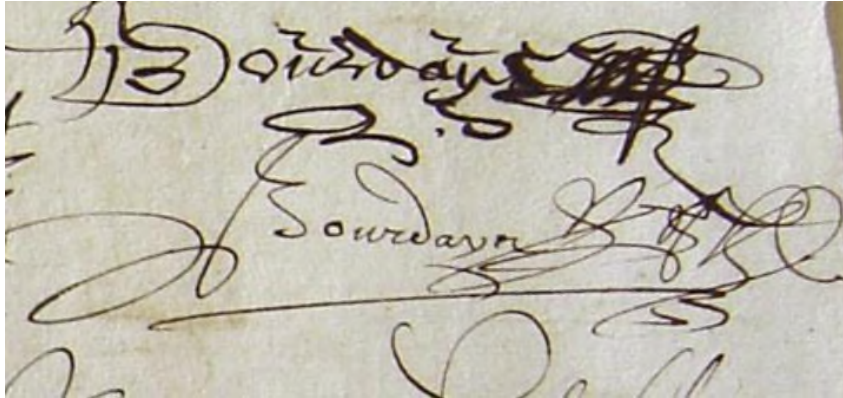 Bourdayn
Bourdayn